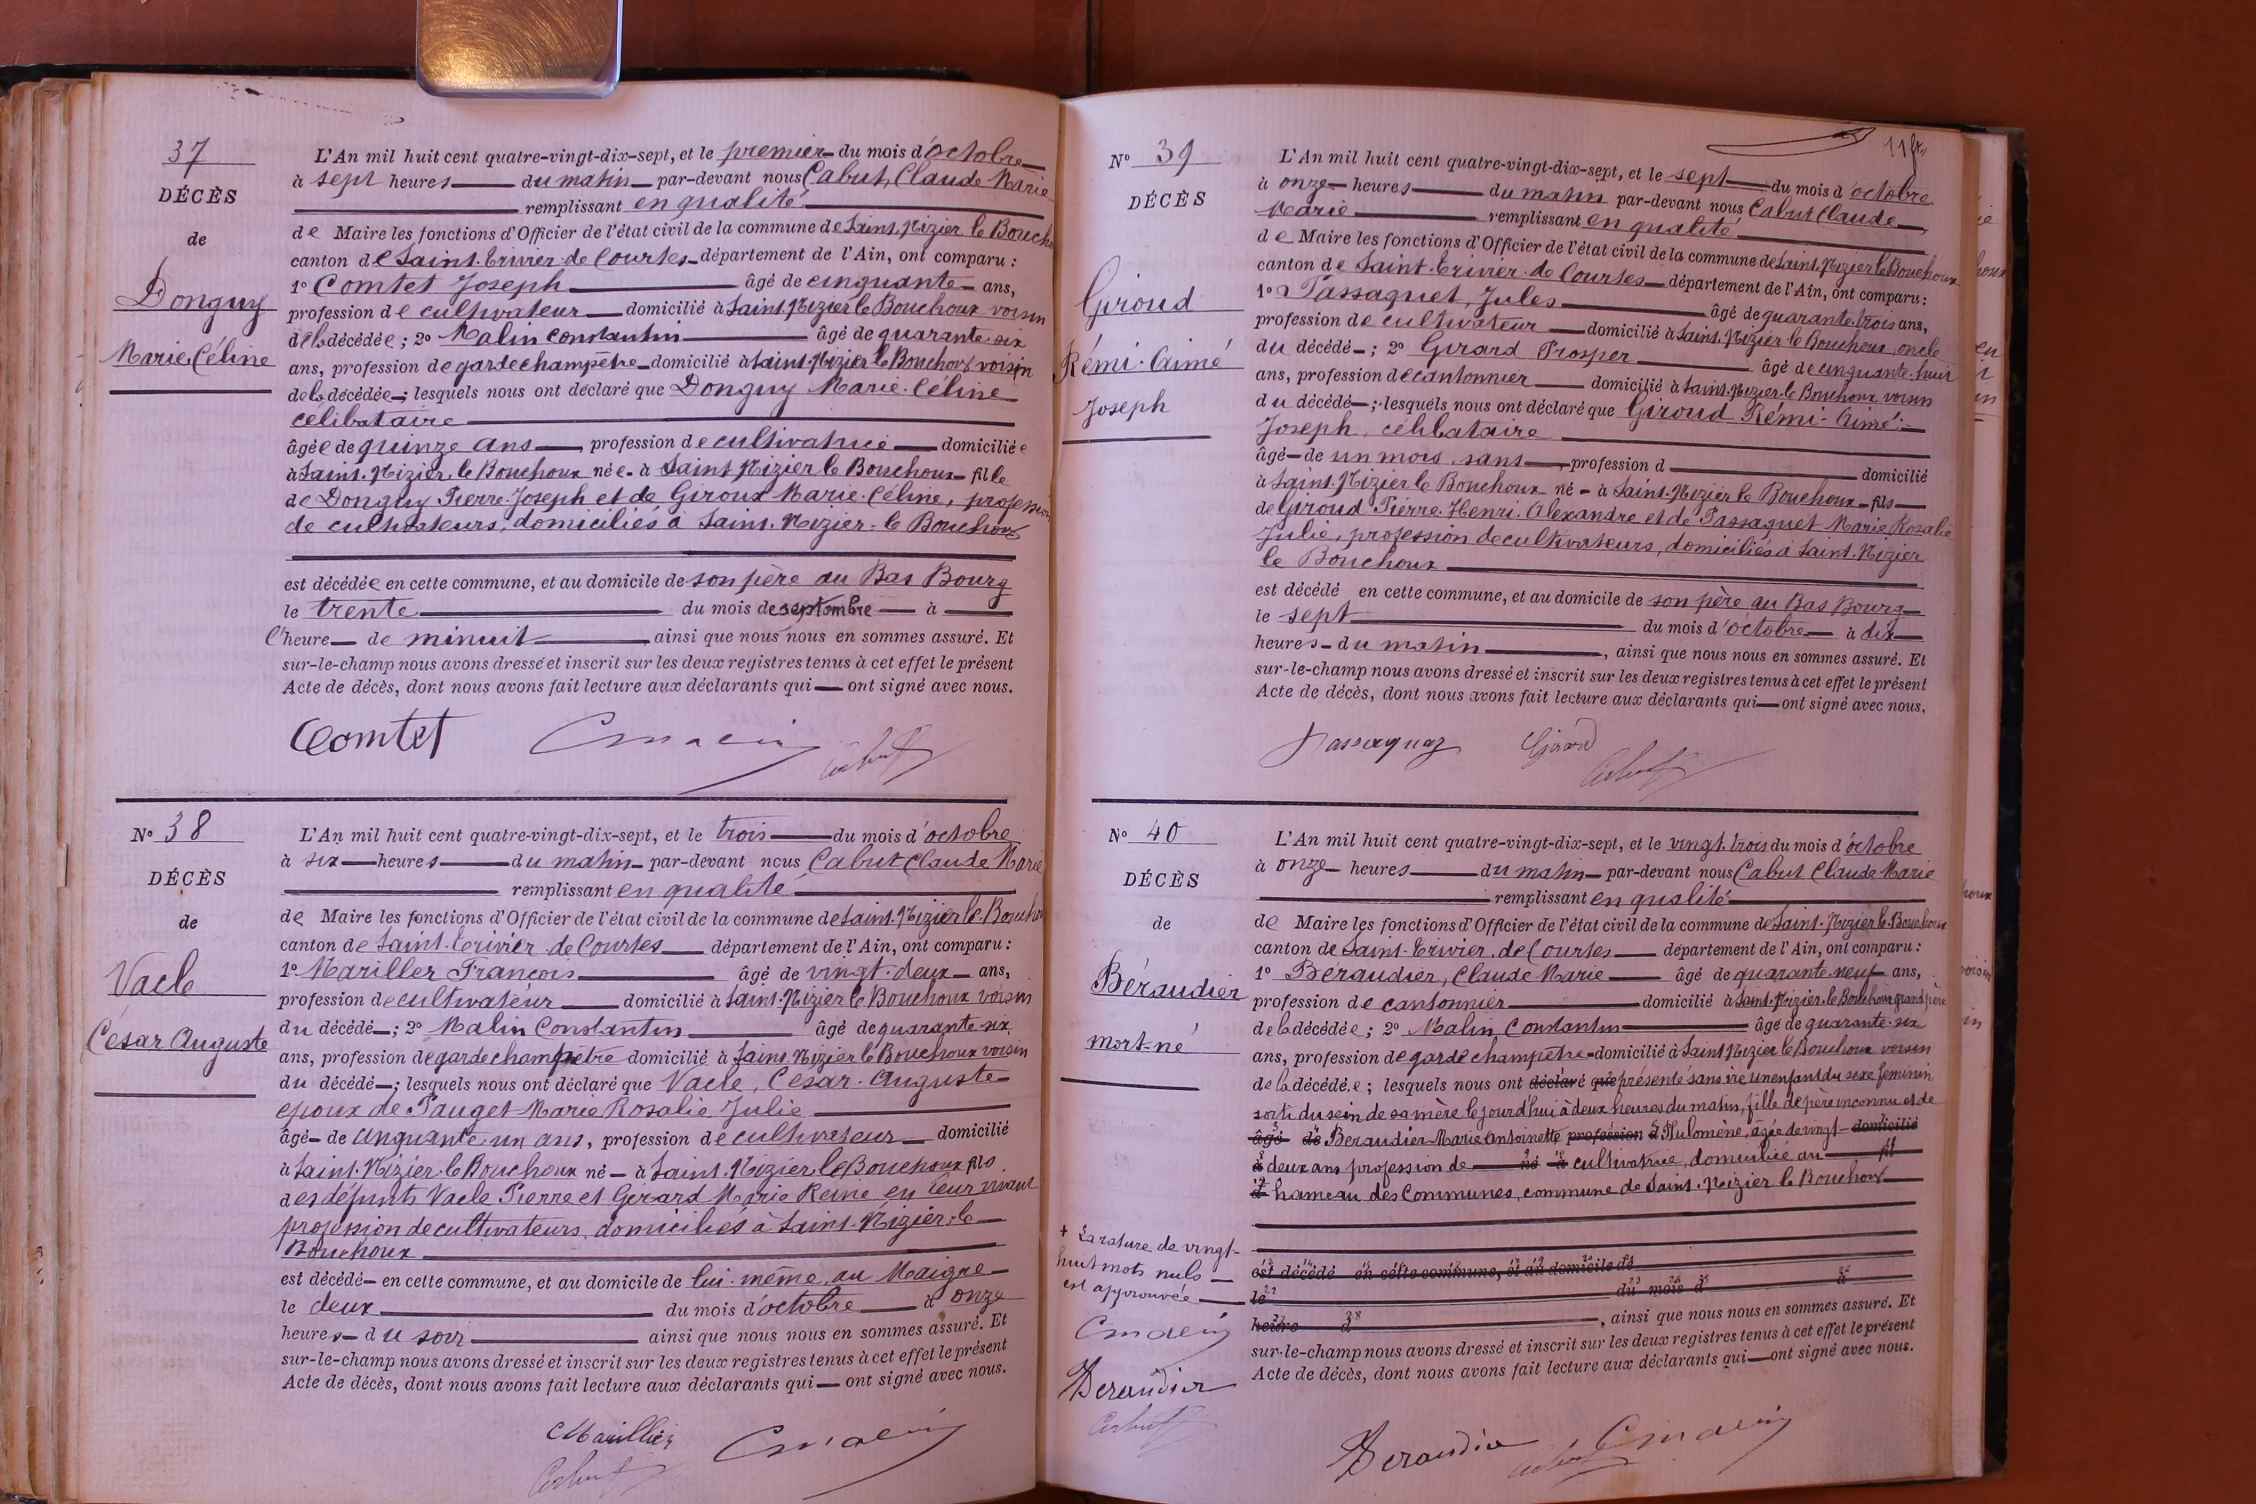 37
DÉCÈS
de
Donguy
Marie Céline
L'An mil huit cent quatre-vingt-dix-sept, et le premier du mois d'octobre
à sept heures du matin par-devant nous Cabut, Claude Marie
remplissant en qualité
de Maire les fonctions d'Officier de l'état civil de la commune de Saint. Nizier le Bouchoux
canton de Saint. Trivier de Courtes département de l'Ain, ont comparu :
1o Comtet Joseph âgé de cinquante ans,
profession de cultivateur domicilié à Saint Nizier le Bouchoux voisin
de la décédée ; 2o Malin Constantin âgé de quarante six
ans, profession de garde champêtre domicilié à Saint Nizier le Bouchoux voisin
de la décédée ; lesquels nous ont déclaré que Donguy Marie Céline
célibataire
âgée de quinze ans, profession de cultivatrice domiciliée
à Saint. Nizier le Bouchoux née à Saint Nizier le Bouchoux fille
de Donguy Pierre Joseph et de Giroux Marie Céline, profession
de cultivateurs, domiciliés à Saint. Nizier le Bouchoux
est décédée en cette commune, et au domicile de son père au Bas Bourg
le trente du mois de septembre à
l'heure de minuit ainsi que nous nous en sommes assuré. Et
sur-le-champ nous avons dressé et inscrit sur les deux registres tenus à cet effet le présent
Acte de décès, dont nous avons fait lecture aux déclarants qui ont signé avec nous.
Comtet Cmalin Cabut
No 38
DÉCÈS
de
Vacle
César Auguste
L'An mil huit cent quatre-vingt-dix-sept, et le trois du mois d'octobre
à six heures du matin par-devant nous Cabut Claude Marie
remplissant en qualité
de Maire les fonctions d'Officier de l'état civil de la commune de Saint. Nizier le Bouchoux
canton de Saint. Trivier de Courtes département de l'Ain, ont comparu :
1o Mariller François âgé de vingt. deux ans,
profession de cultivateur domicilié à Saint. Nizier le Bouchoux voisin
du décédé ; 2o Malin Constantin âgé de quarante six
ans, profession de garde champêtre domicilié à Saint Nizier le Bouchoux voisin
du décédé ; lesquels nous ont déclaré que Vacle, César. Auguste
époux de Pauget Marie Rosalie Julie
âgé de cinquante un ans, profession de cultivateur domicilié
à Saint. Nizier le Bouchoux né à Saint. Nizier le Bouchoux fils
des défunts Vacle Pierre et Girard Marie Reine en leur vivant
profession de cultivateurs, domiciliés à Saint. Nizier le
Bouchoux
est décédé en cette commune, et au domicile de lui même, au Maigre
le deux du mois d'octobre à onze
heures du soir ainsi que nous nous en sommes assuré. Et
sur-le-champ nous avons dressé et inscrit sur les deux registres tenus à cet effet le présent
Acte de décès, dont nous avons fait lecture aux déclarants qui ont signé avec nous.
Marillier Cmalin
Cabut
No 39
DÉCÈS
Giroud
Rémi. Aimé
Joseph
L'An mil huit cent quatre-vingt-dix-sept, et le sept du mois d'octobre
à onze heures du matin par-devant nous Cabut Claude
Marie remplissant en qualité
de Maire les fonctions d'Officier de l'état civil de la commune de Saint. Nizier le Bouchoux
canton de Saint. Trivier de Courtes département de l'Ain, ont comparu :
1o Passaquet, Jules âgé de quarante trois ans,
profession de cultivateur domicilié à Saint. Nizier le Bouchoux oncle
du décédé ; 2o Girard Prosper âgé de cinquante huit
ans, profession de cantonnier domicilié à Saint. Nizier le Bouchoux voisin
du décédé ; lesquels nous ont déclaré que Giroud Rémi. Aimé
Joseph, célibataire
âgé de un mois, sans profession d domicilié
à Saint. Nizier le Bouchoux né à Saint. Nizier le Bouchoux fils
de Giroud Pierre. Henri. Alexandre et de Passaquet Marie Rosalie
Julie, profession de cultivateurs, domiciliés à Saint. Nizier
le Bouchoux
est décédé en cette commune, et au domicile de son père au Bas Bourg
le sept du mois d'octobre à dix
heures du matin, ainsi que nous nous en sommes assuré. Et
sur-le-champ nous avons dressé et inscrit sur les deux registres tenus à cet effet le présent
Acte de décès, dont nous avons fait lecture aux déclarants qui ont signé avec nous.
Passaquay Girard
Cabut
No 40
DÉCÈS
de
Béraudier
mort-né
L'An mil huit cent quatre-vingt-dix-sept, et le vingt. trois du mois d'octobre
à onze heures du matin par-devant nous Cabut Claude Marie
remplissant en qualité
de Maire les fonctions d'Officier de l'état civil de la commune de Saint. Nizier le Bouchoux
canton de Saint. Trivier de Courtes département de l'Ain, ont comparu :
1o Beraudier, Claude Marie âgé de quarante neuf ans,
profession de cantonnier domicilié à Saint. Nizier le Bouchoux grand père
de la décédée ; 2o Malin Constantin âgé de quarante. six
ans, profession de garde champêtre domicilié à Saint Nizier le Bouchoux voisin
de la décédée ; lesquels nous ont déclaré que présenté sans vie un enfant du sexe féminin
sorti du sein de sa mère le jourd'hui à deux heures du matin, fille de père inconnu et de
âgé de Beraudier Marie Antoinette profession d Philomène, âgée de vingt domicilié
à deux ans profession de né à cultivatrice, domiciliée au fil
d hameau des Communes, commune de Saint. Nizier le Bouchoux
est décédé en cette commune, et au domicile de
le du mois d à
heure d, ainsi que nous nous en sommes assuré. Et
sur-le-champ nous avons dressé et inscrit sur les deux registres tenus à cet effet le présent
Acte de décès, dont nous avons fait lecture aux déclarants qui ont signé avec nous.
+ La rature de vingt-
huit mots nuls
est approuvée
Cmalin
Beraudier
Cabut
Beraudier Cabut Cmalin